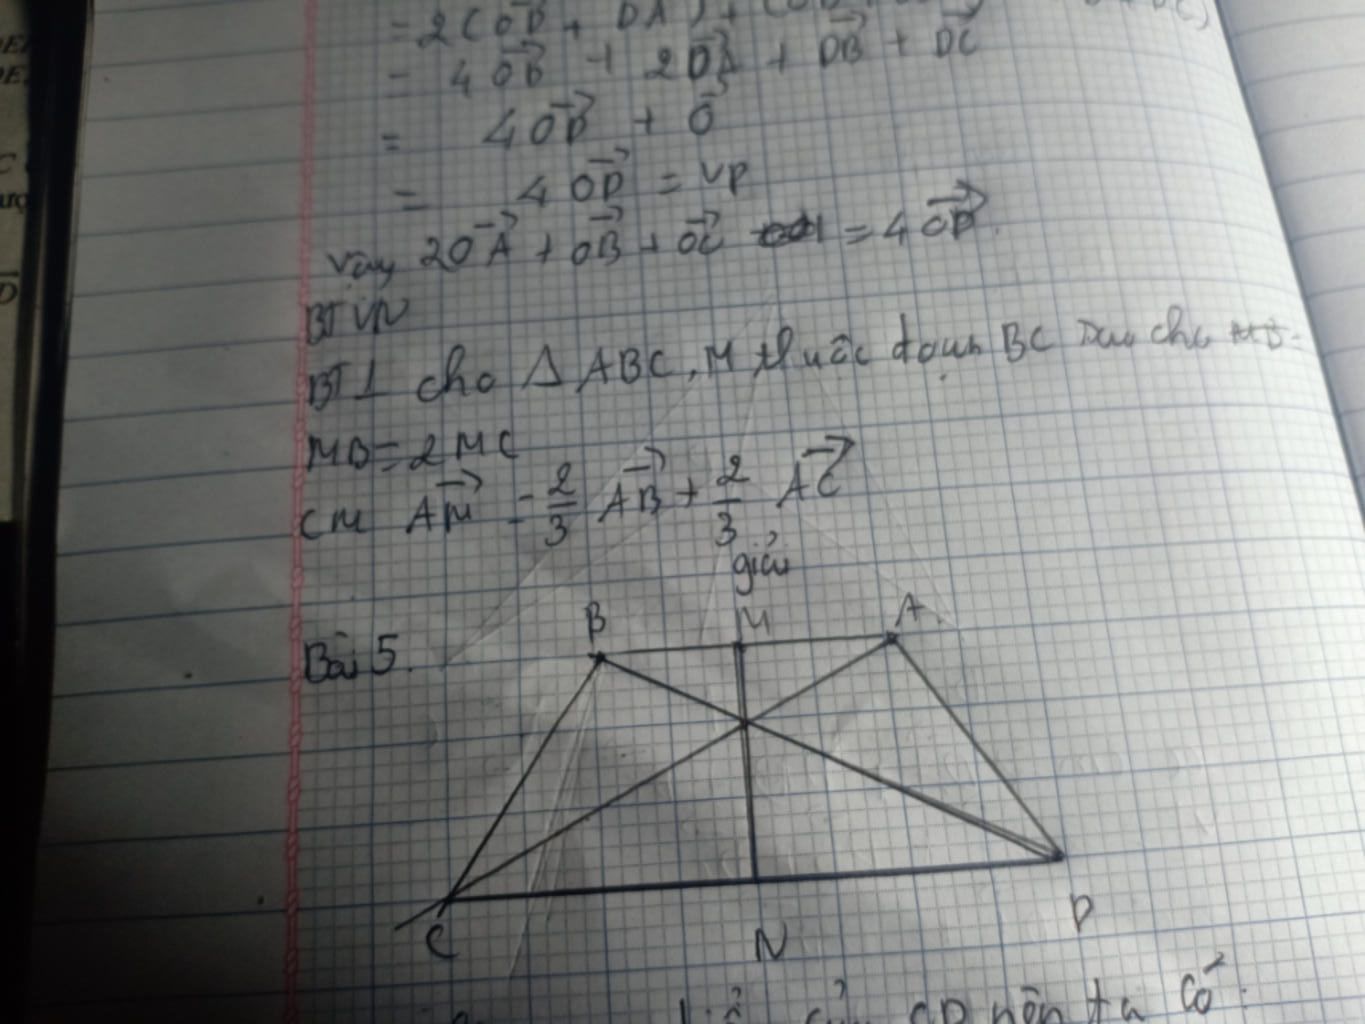 = 2(OD + DA) + (OD
= 4OD + 2DA + DB + DC
= 4OD + O
= 4OD = VP
Vậy 2OA + OB + OC = 4OD.
BTVN
BT1 cho Δ ABC, M thuộc đoạn BC sao cho
MB = 2MC
CM AM = 2/3 AB + 2/3 AC
giải
Bài 5.
B M A
C N D
CD nên ta có: